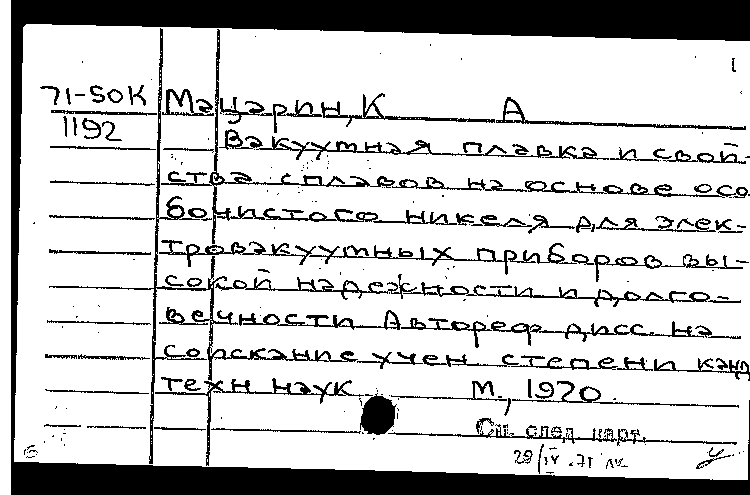 1
71-50К Мацарин, К А
1192 Вакуумная плавка и свой-
ства сплавов на основе осо
бочистого никеля для элек-
тровакуумных приборов вы-
сокой надежности и долго-
вечности Автореф дисс. на
соискание учен степени канд
техн наук М., 1970.
См. след. карт.
29/IV.71